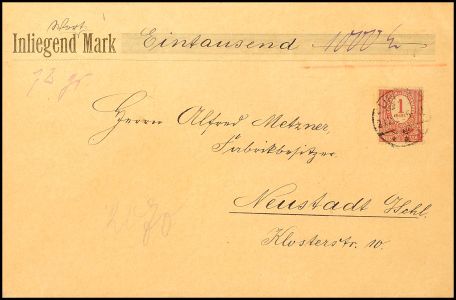 Wert
Inliegend Mark Eintausend 1000 M
73 gr.
1
Herrn Alfred Metzner,
Fabrikbesitzer
Neustadt O/Schl.
Klosterstr. 10.